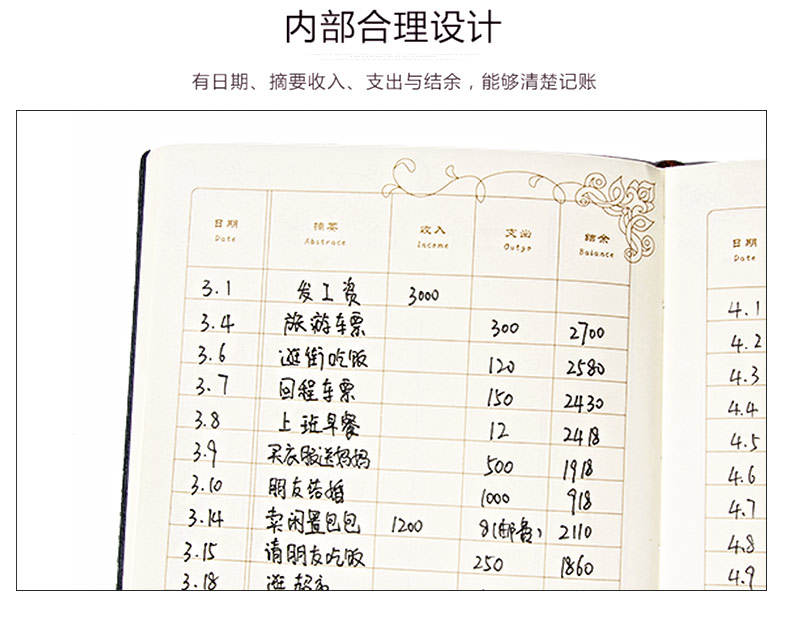 内部合理设计
有日期、摘要收入、支出与结余，能够清楚记账
日期 摘要 收入 支出 结余 日期
Date Abstrace Income Outgo Balance Date
3.1 发工资 3000 4.1
3.4 旅游车票 300 2700 4.2
3.6 逛街吃饭 120 2580 4.3
3.7 回程车票 150 2430 4.4
3.8 上班早餐 12 2418 4.5
3.9 买衣服送妈妈 500 1918 4.6
3.10 朋友结婚 1000 918 4.7
3.14 卖闲置包包 1200 8(邮费) 2110 4.8
3.15 请朋友吃饭 250 1860 4.9
3.18 逛超市